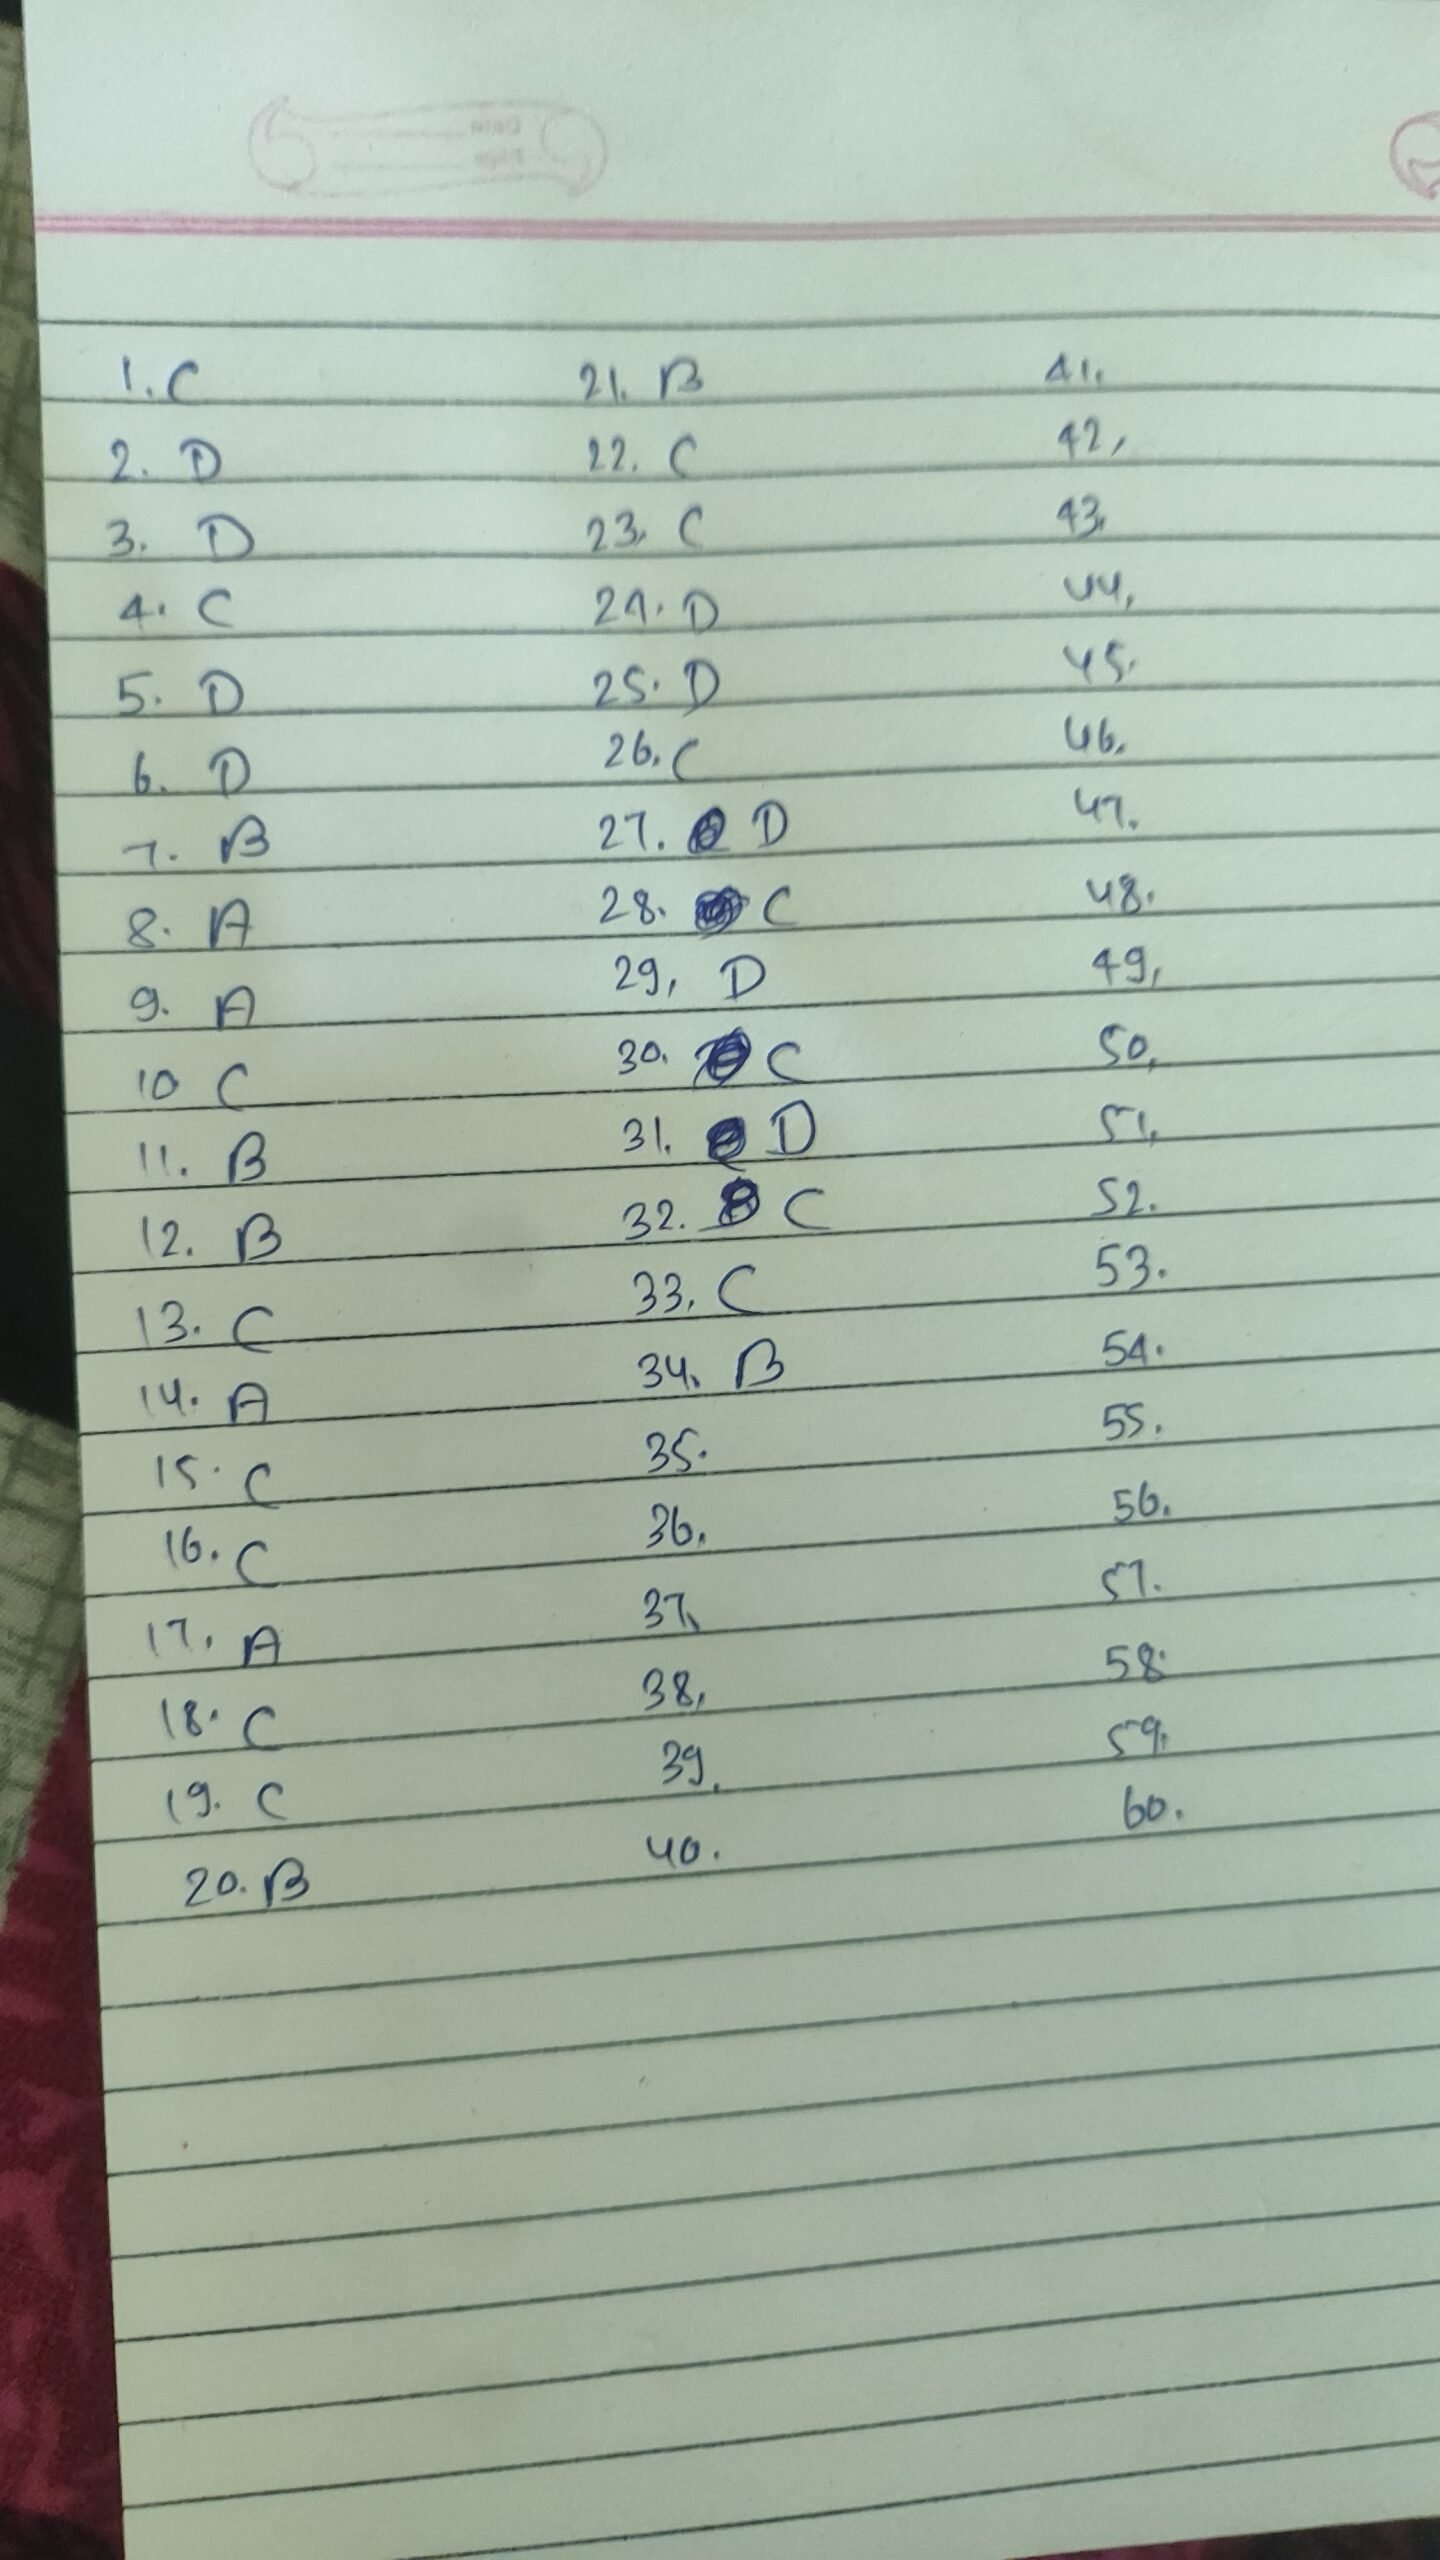 1. C
2. D
3. D
4. C
5. D
6. D
7. B
8. A
9. A
10 C
11. B
12. B
13. C
14. A
15. C
16. C
17. A
18. C
19. C
20. B
21. B
22. C
23. C
24. D
25. D
26. C
27. D
28. C
29, D
30. C
31. D
32. C
33, C
34. B
35.
36.
37,
38,
39.
40.
41.
42,
43.
44,
45.
46.
47.
48.
49,
50,
51,
52.
53.
54.
55.
56.
57.
58.
59.
60.